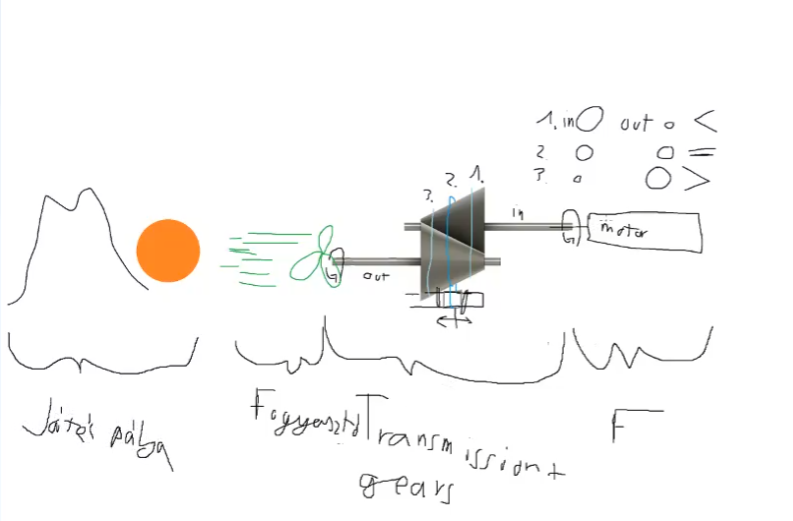 1. in O out o <
2. O O =
3. o O >
3. 2. 1.
in
motor
out
Játék pálya
Fogyasztó
Transmission +
gears
F